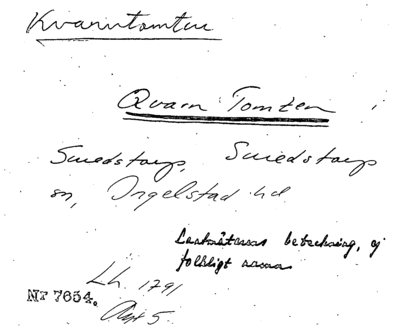 Kvarntomten
Qvarn Tomten
Smedstorp, Smedstorp
sn, Ingelstad hd
Lantmätarens beteckning, ej
folkligt namn
Lh. 1791
Akt 5
Nr 7654.